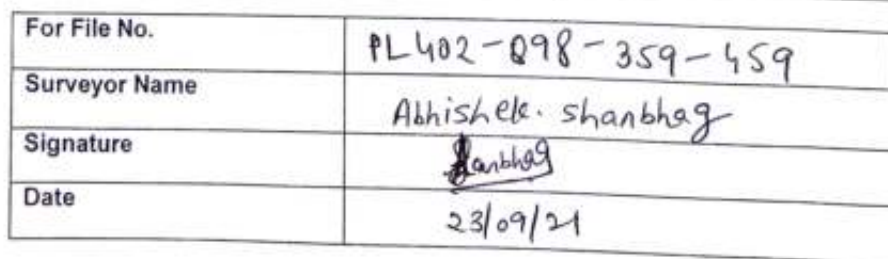 For File No. PL402-Q98-359-459
Surveyor Name Abhishek. shanbhag
Signature Shanbhag
Date 23/09/21